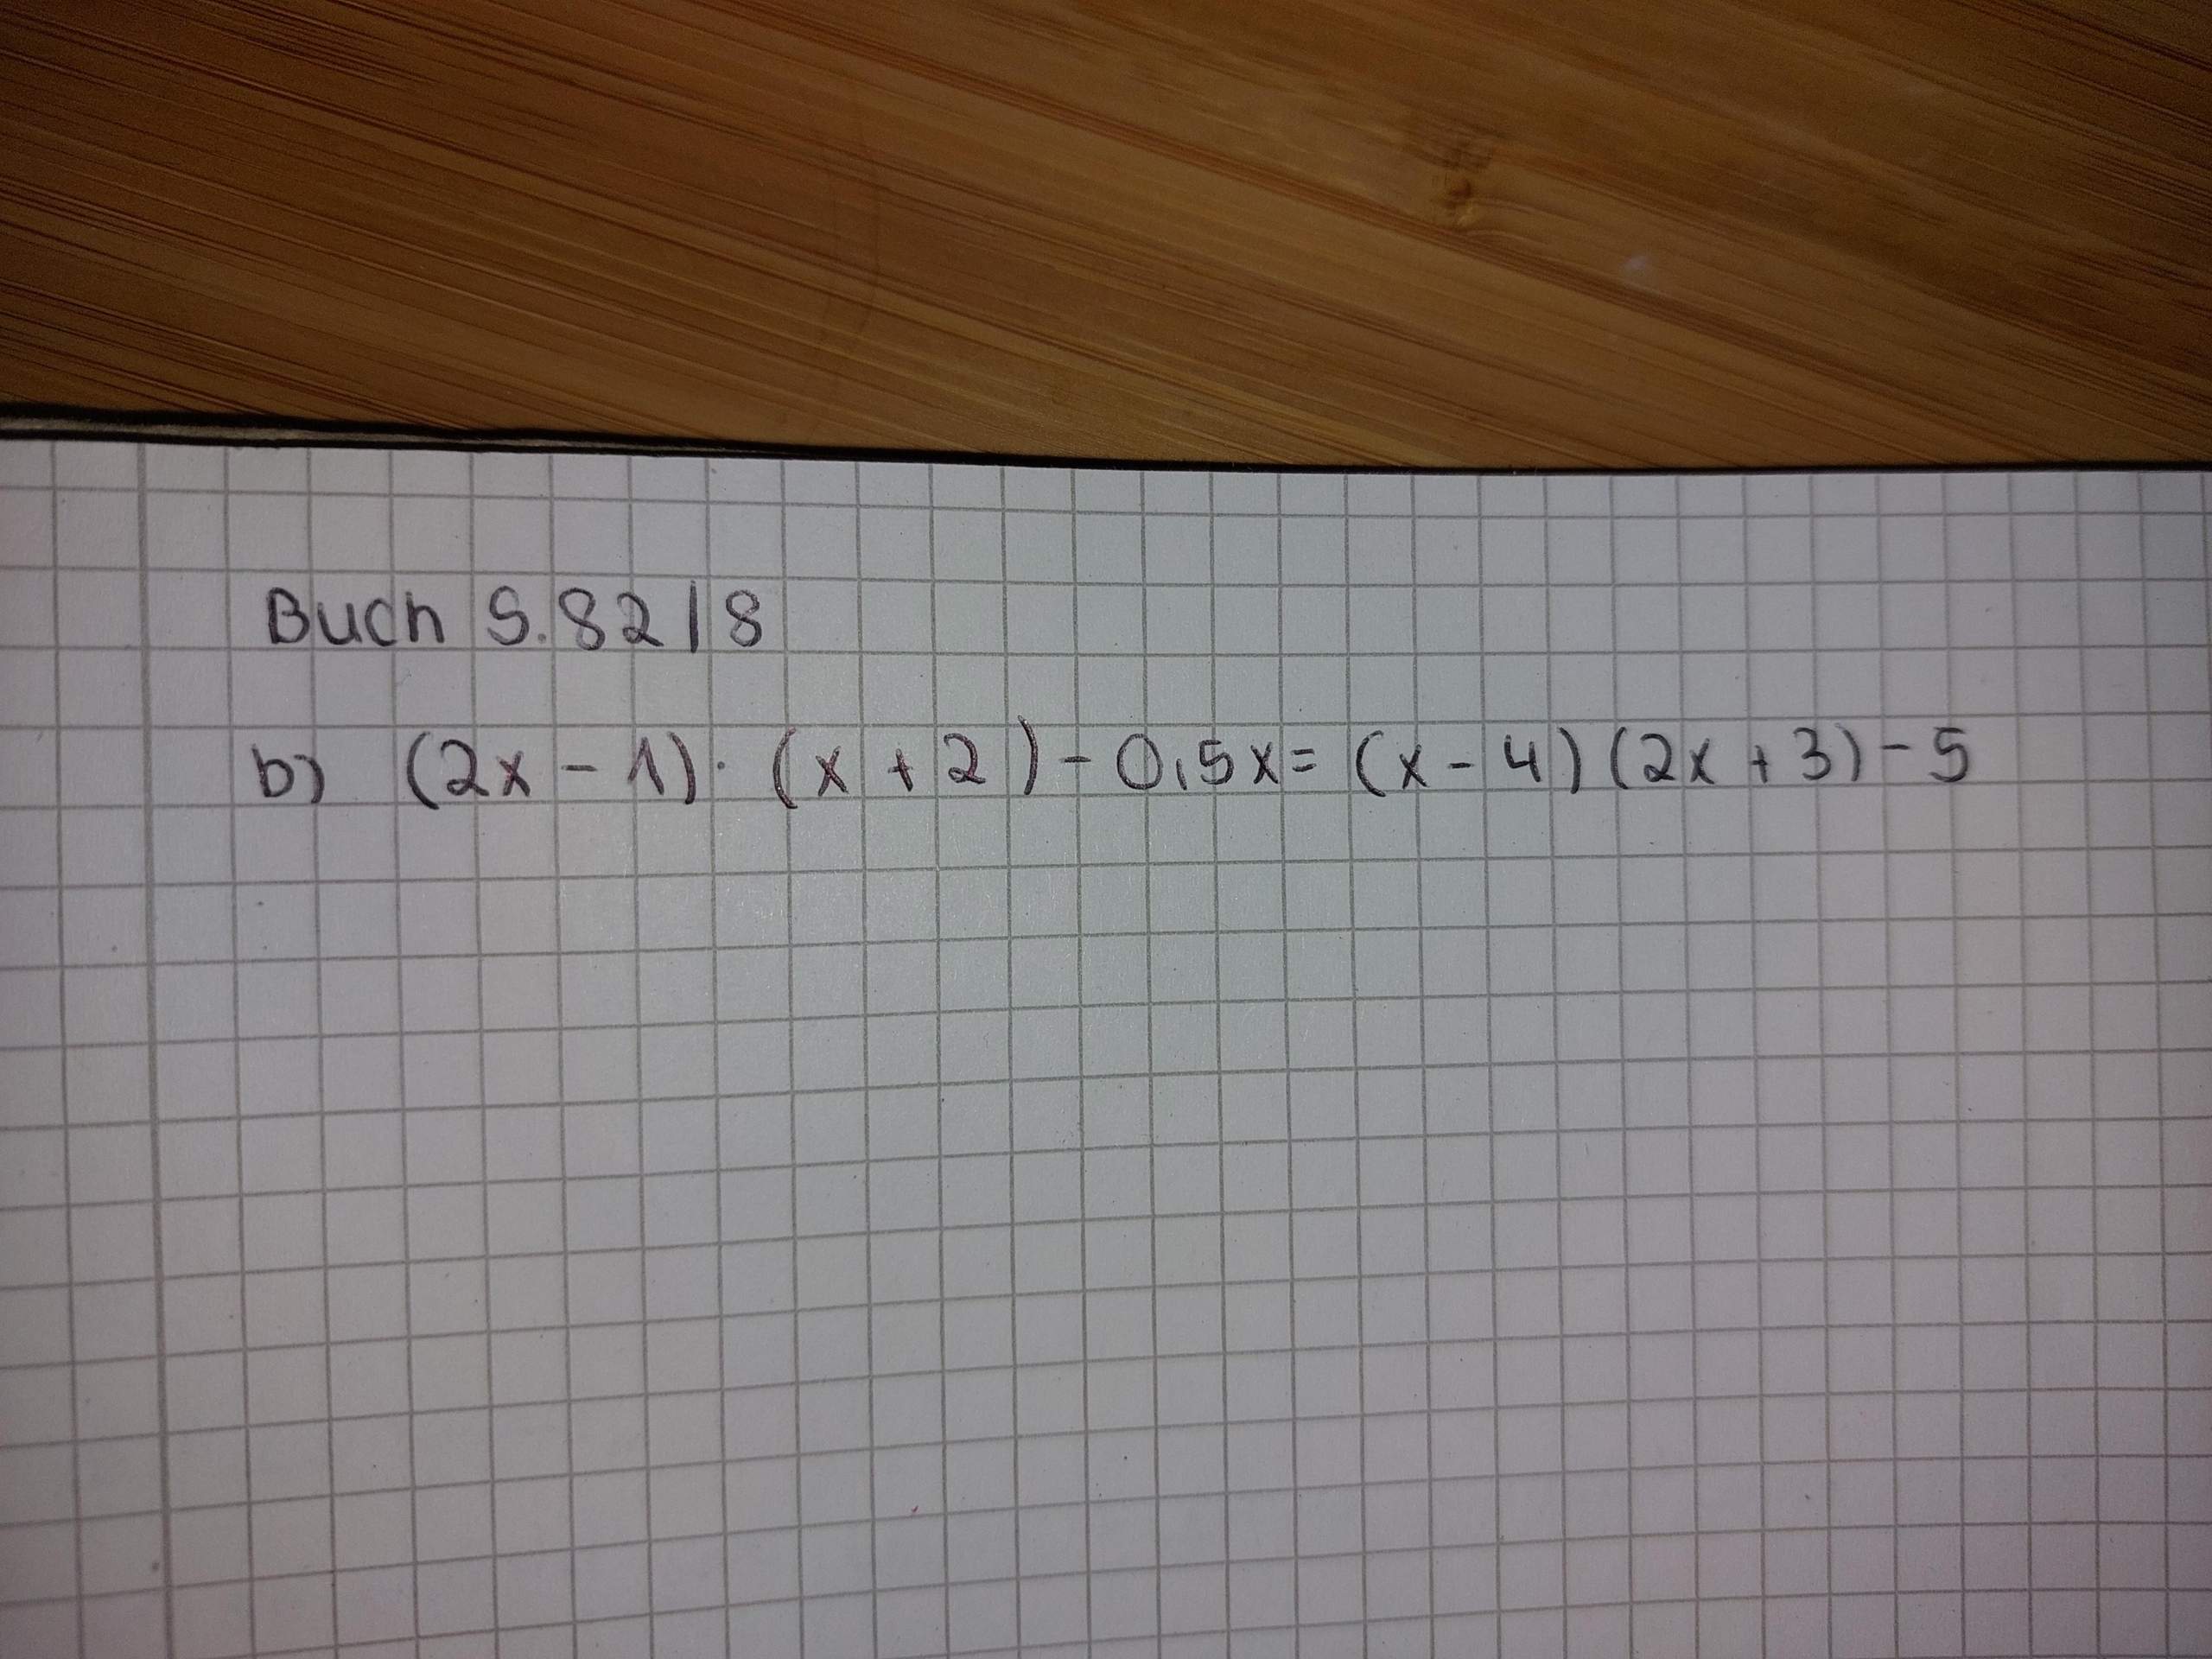 Buch S. 82 | 8
b) (2x - 1) · (x + 2) - 0,5x = (x - 4) (2x + 3) - 5